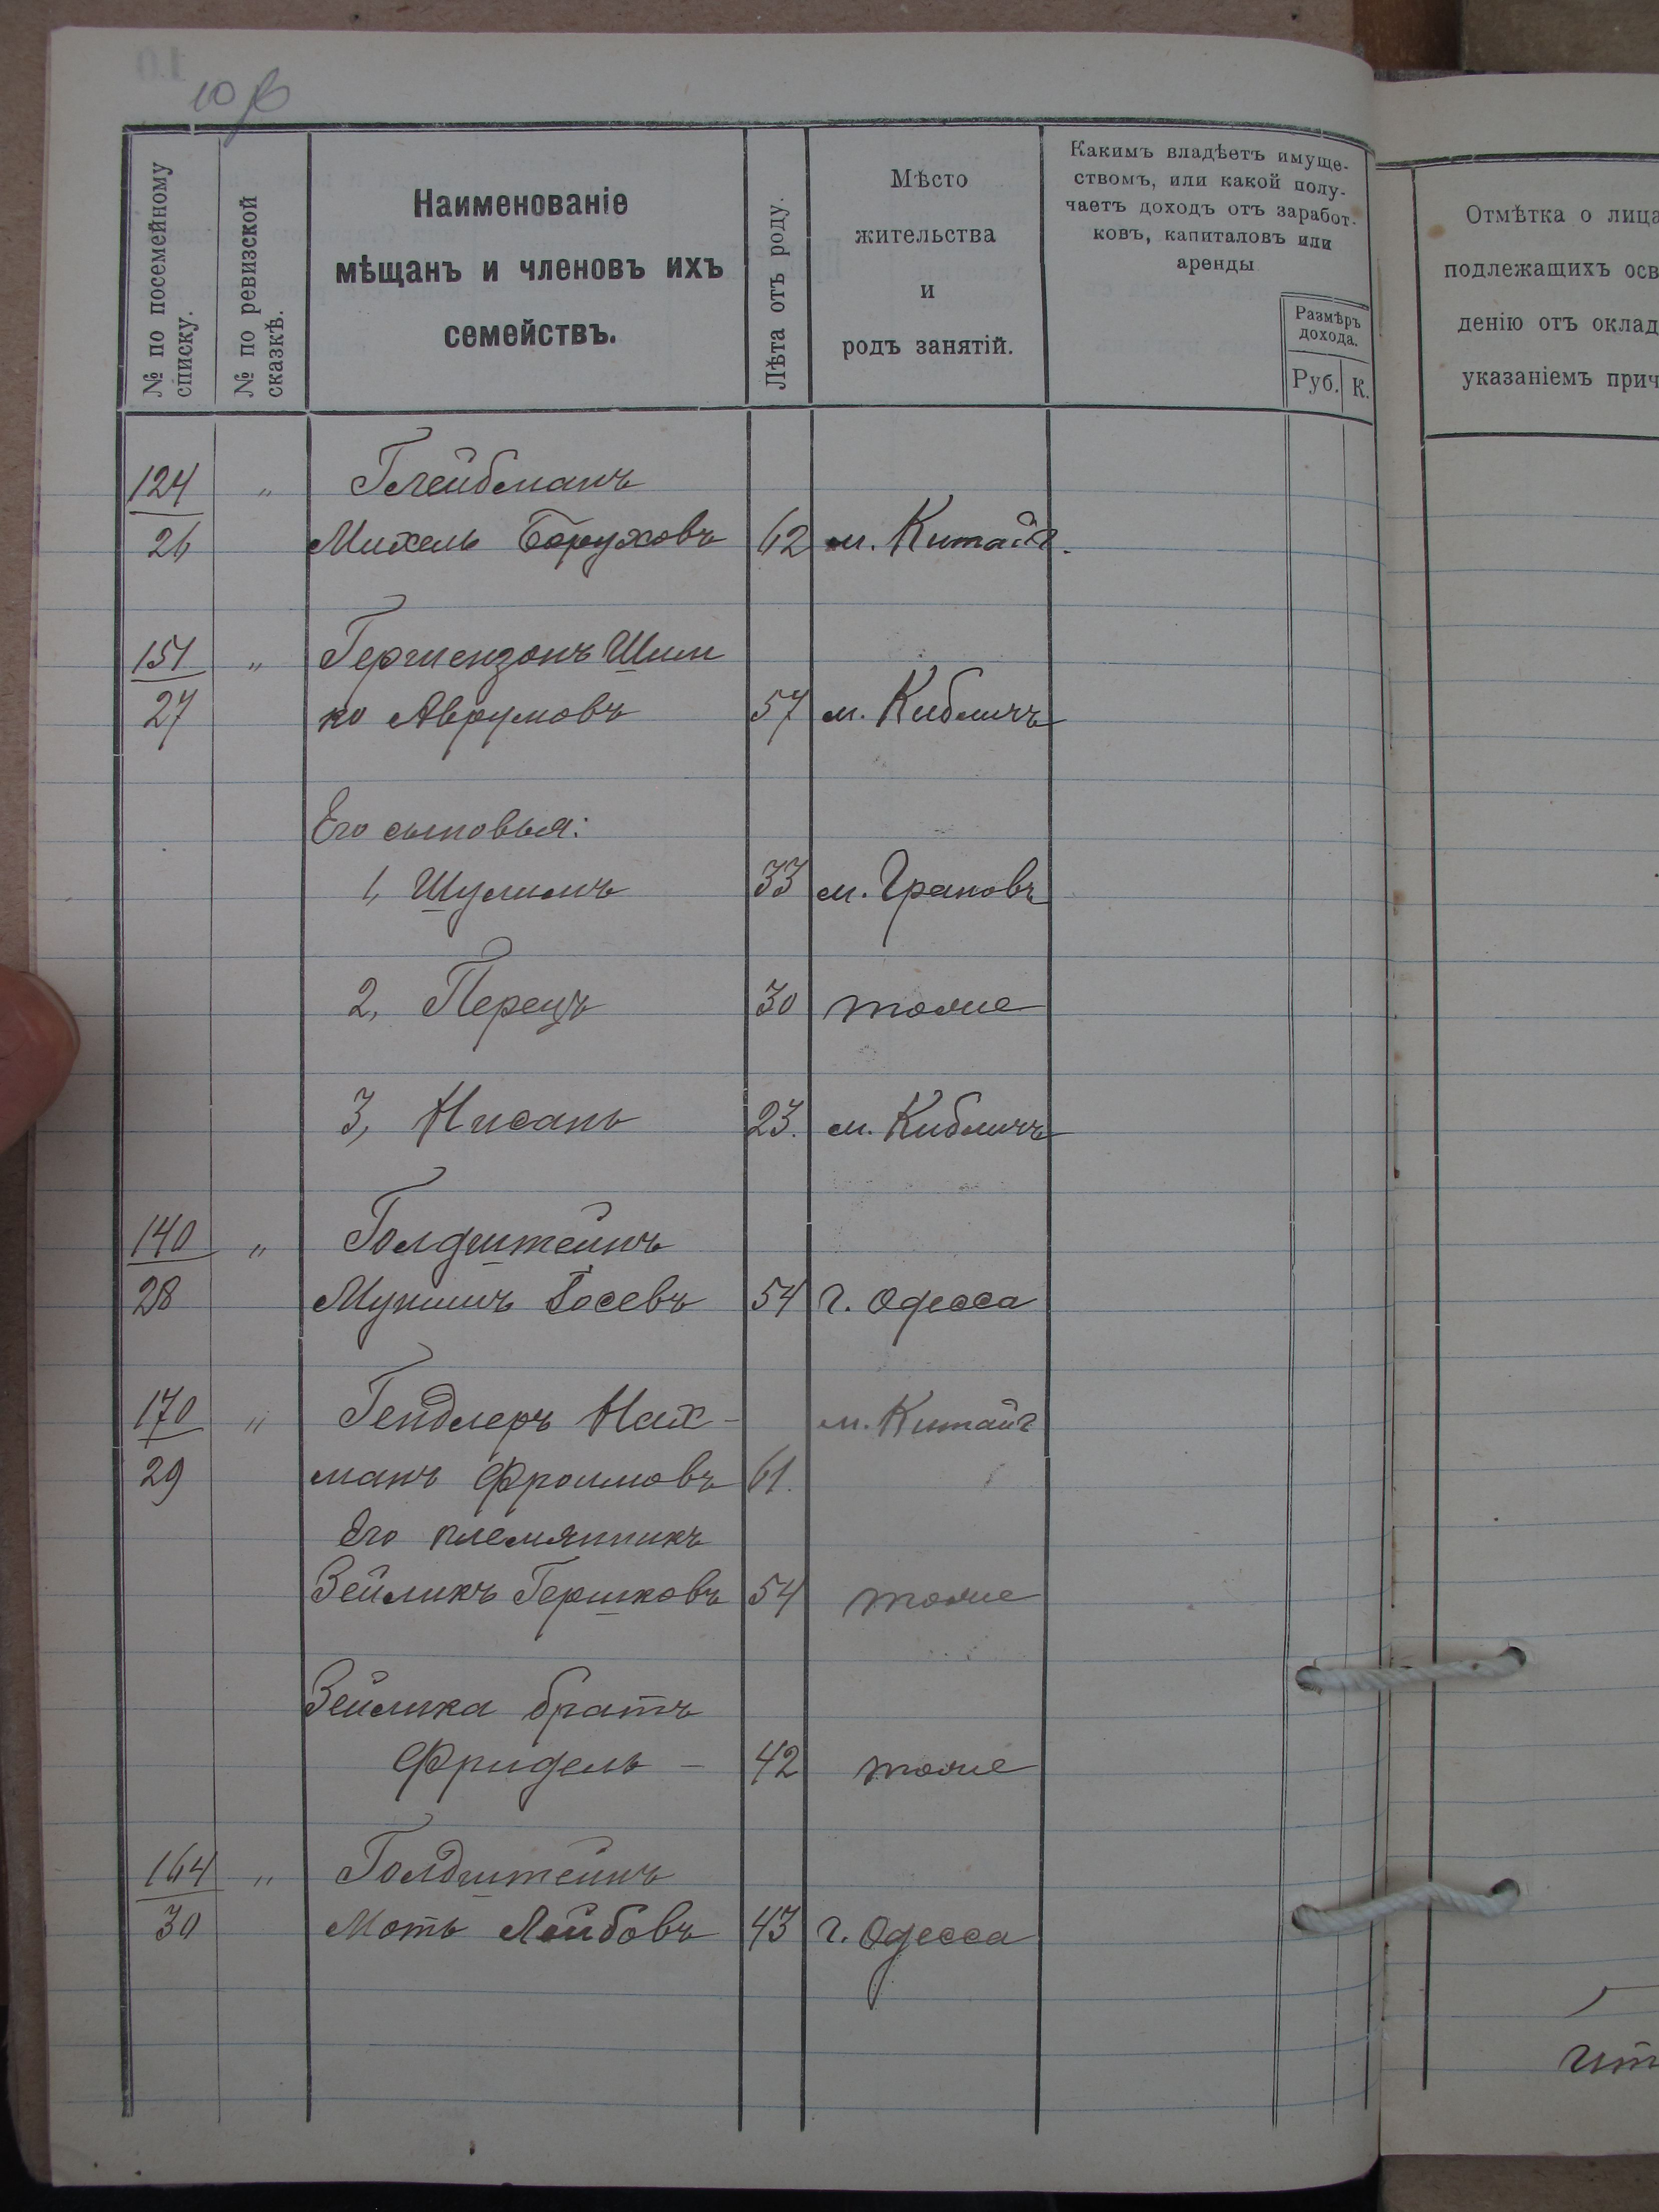 10 в
№ по посемейному
списку.
№ по ревизской
сказкѣ.
Наименованіе
мѣщанъ и членовъ ихъ
семействъ.
Лѣта отъ роду.
Мѣсто
жительства
и
родъ занятій.
Какимъ владѣетъ имуще-
ствомъ, или какой полу-
чаетъ доходъ отъ заработ-
ковъ, капиталовъ или
аренды
Размѣръ
дохода.
Руб. К.
Отмѣтка о лица
подлежащихъ осв
денію отъ оклад
указаніемъ прич
124 " Глейбманъ
26 Михель Боруховъ 62 м. Китайг.
151 " Гершензонъ Шим
27 ко Аврумовъ 57 м. Кибличъ
Его сыновья:
1, Шулимъ 33 м. Грановъ
2, Перецъ 30 тоже
3, Нисань 23. м. Кибличъ
140 " Голдштейнъ
28 Мунишъ Іосевъ 54 г. Одесса
170 " Гендлеръ Нах- м. Китайг
29 манъ Фроимовъ 61.
Его племянникъ
Зейликъ Гершковъ 54 тоже
Зейлика братъ
Фридель - 42 тоже
164 " Голдштейнъ
30 Моть Лейбовъ 43 г. Одесса
ит